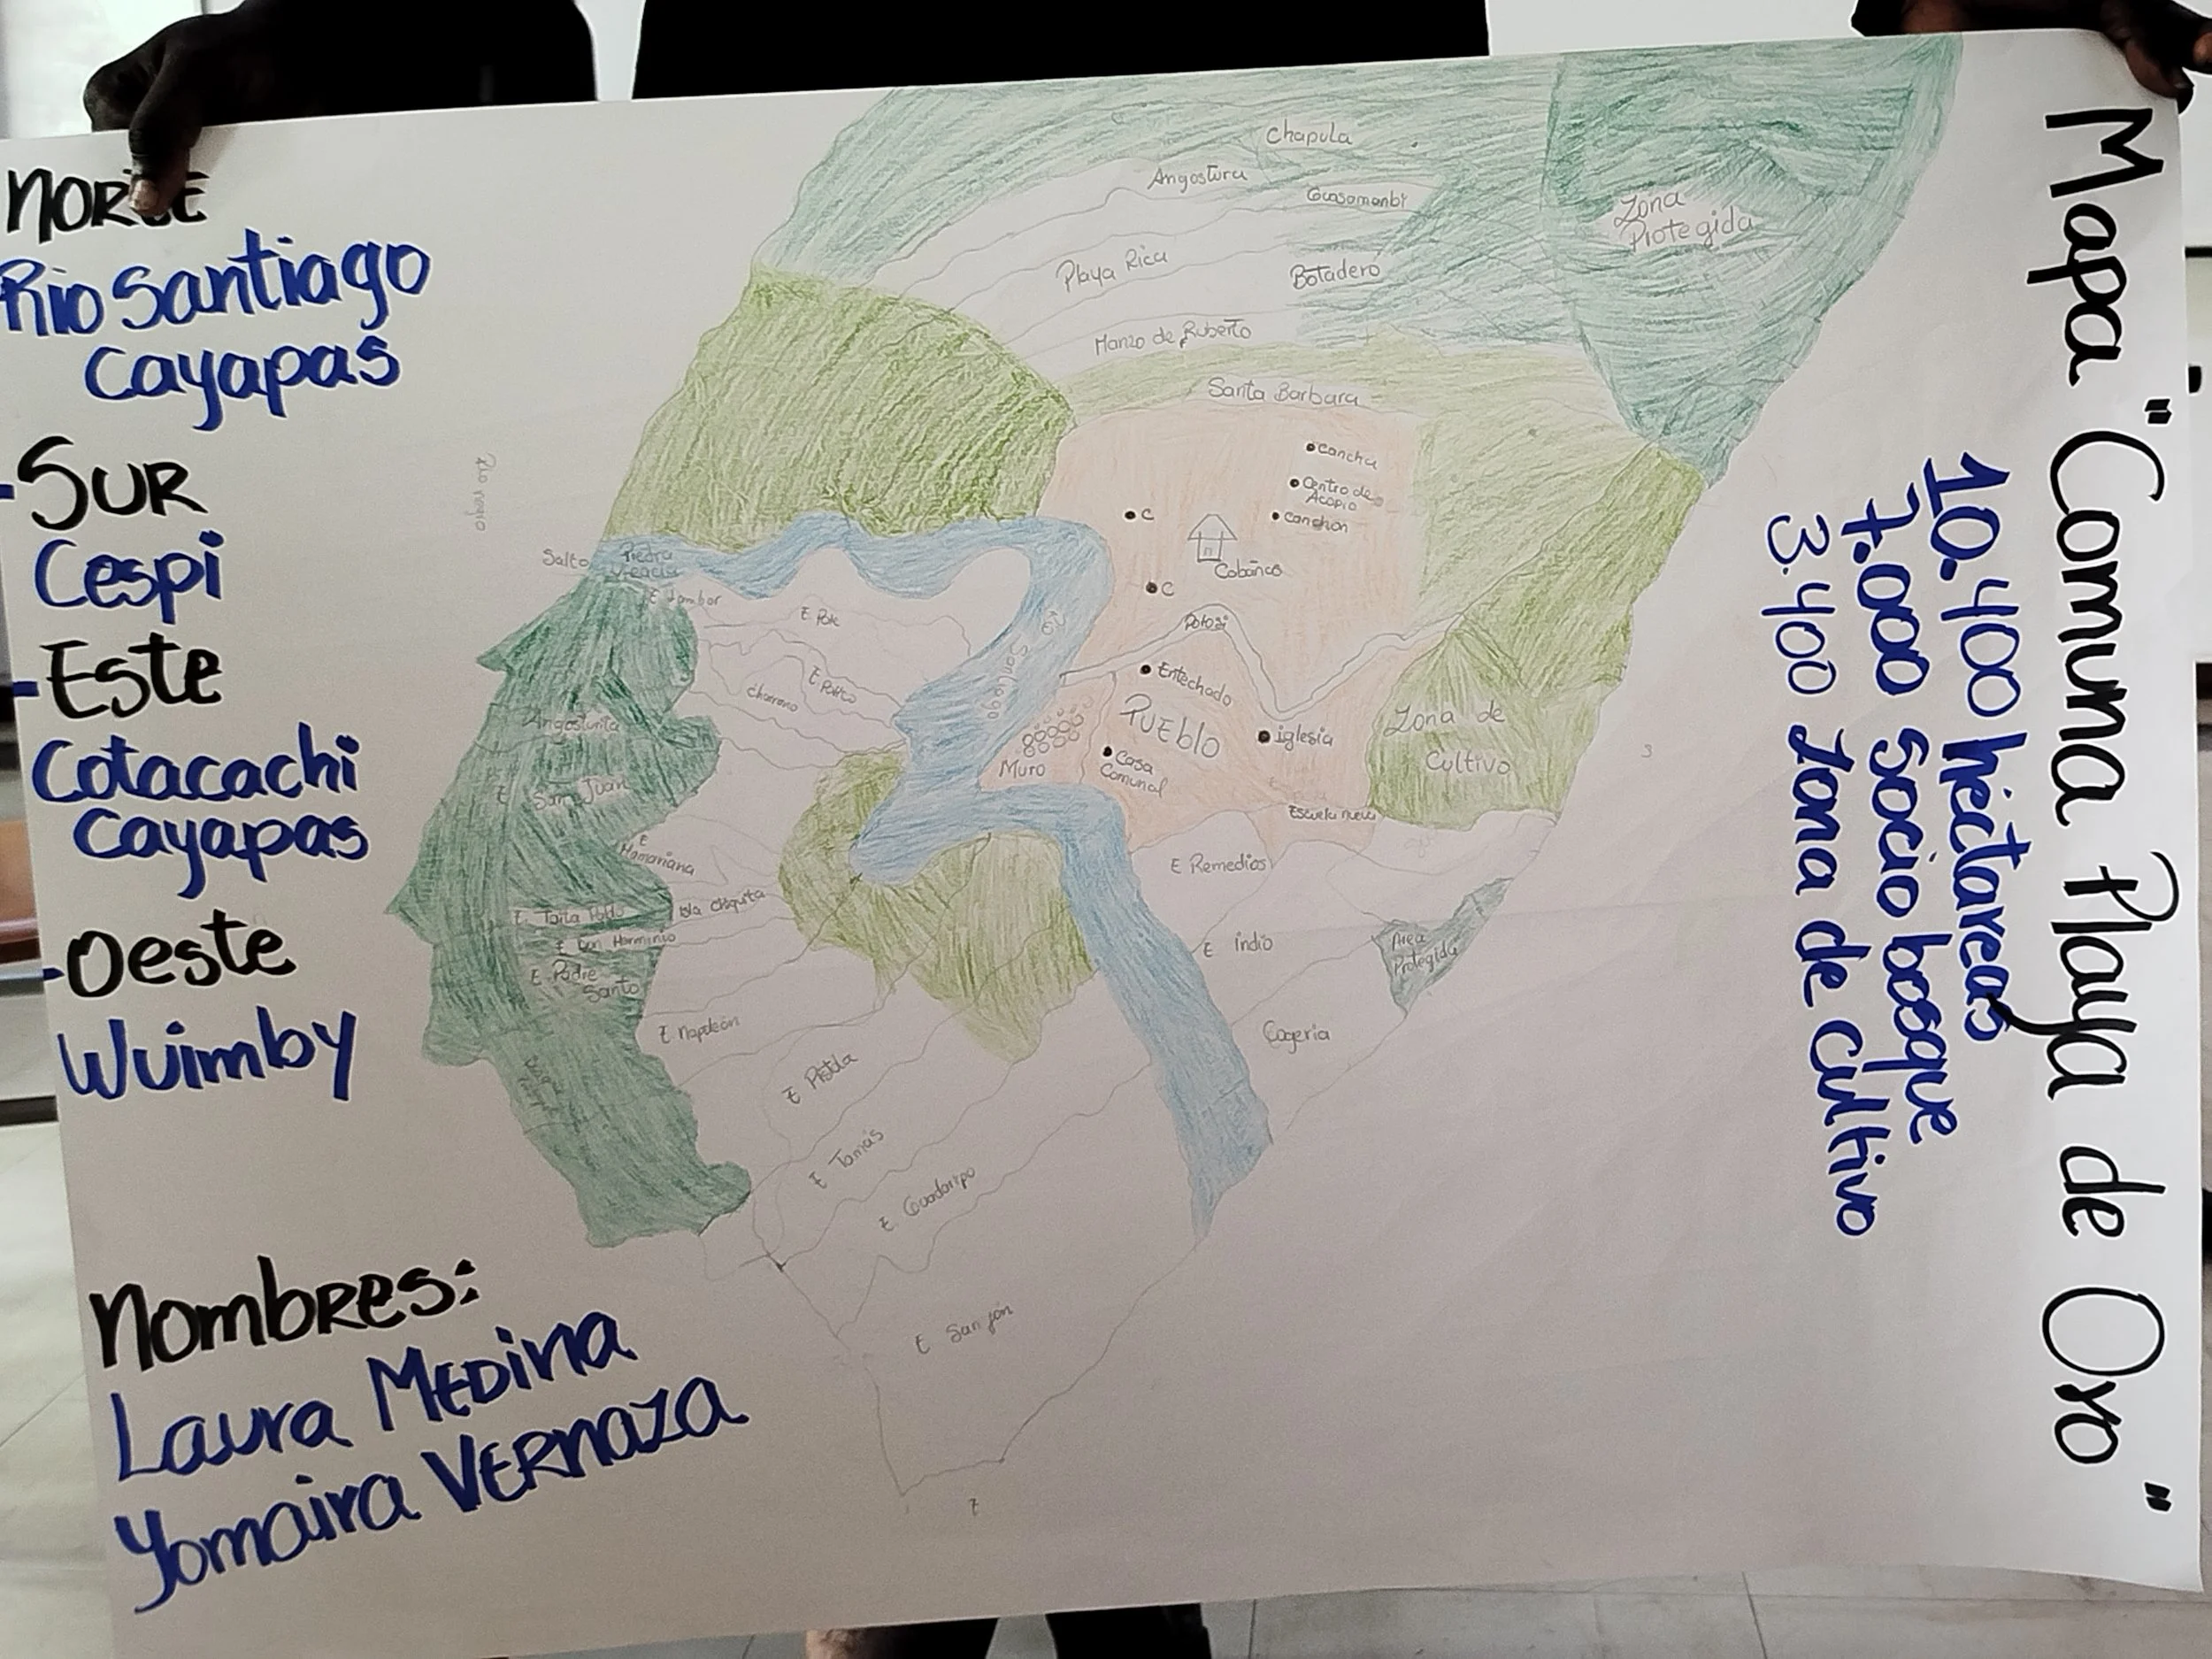 Mapa "Comuna Playa de Oro"
10.400 héctareas
7.000 socio bosque
3.400 zona de cultivo
NORTE
Rio Santiago
Cayapas
-SUR
Cespi
-Este
Cotacachi
Cayapas
-Oeste
Wuimby
Nombres:
Laura MEDina
Yomaira VERnaza
Chapula
Angostura
Guasomanbi
Zona
Protegida
Playa Rica
Botadero
Manzo de Ruberto
Santa Barbara
Cancha
Centro de
Acopio
canchon
C
Cabañas
C
Salto
Piedra
E. Pote
Rio Santiago
Potosi
Entechado
PUEblo
iglesia
Casa
Comunal
Muro
Zona de
Cultivo
Escuela nueva
Angosturita
E San Juan
E
Mamariana
Isla chiquita
E. Taita Pablo
E Don Herminio
E. Padre
Santo
E Napoleón
E Pistola
E Tomás
E. Guadaripo
E San jón
E Remedios
E Indio
Area
Protegida
Cageria
3
7